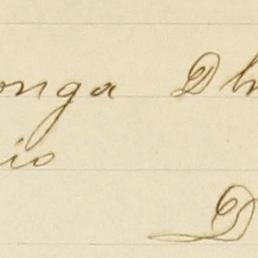 onga Dh
io
D